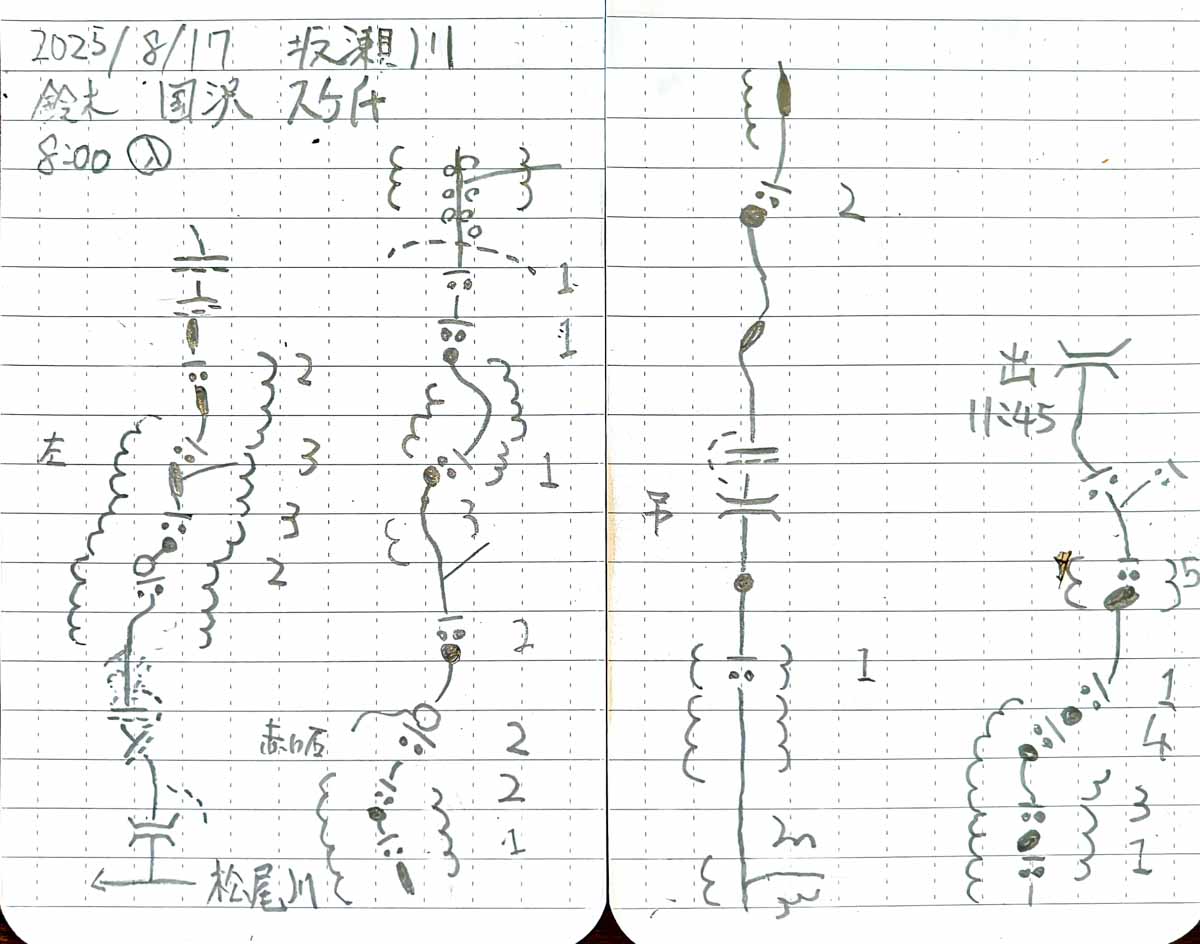 2025/8/17 坂瀬川
鈴木 国沢 スケ仆
8:00 入
1
1
2
左
3
1
3
3
2
2
赤口沢
2
2
1
松尾川
2
出
11:45
吊
5
1
1
4
3
2m
1
3